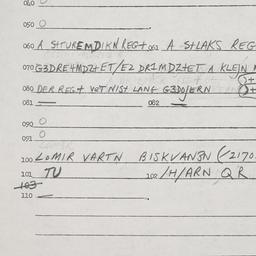 040
050 O
060 A STUREMDIKN REGT 063 A STLAKS REG
070 G3DRE4MDZtET/EZ DR1MDZtET A KLEJN
080 DER REGT VET NIST LANG G3DOJERN
081 — 082 —
090 O
091 O
100 LOMIR VARTN BISKVANSN (/2170
101 TU 102 /H/ARN Q R
103
110 —